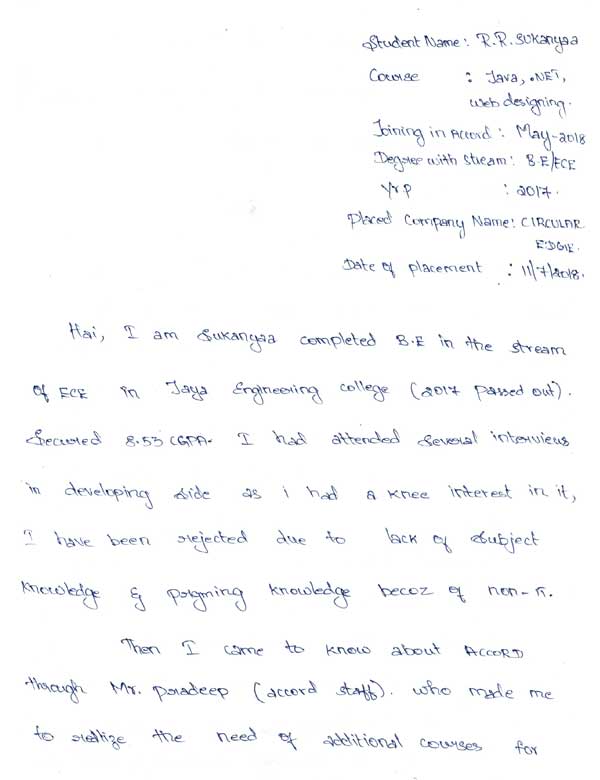 Student Name : R.R. Sukanyaa
Course : Java, .NET,
web designing.
Joining in Accord : May-2018
Degree with Stream : B.E/ECE
Yr P : 2017.
Placed Company Name : CIRCULAR
EDGE.
Date of placement : 11/7/2018.
Hai, I am Sukanyaa completed B.E in the stream
of ECE in Jaya Engineering college (2017 passed out).
Secured 8.53 CGPA. I had attended Several interviews
in developing side as i had a knee interest in it,
I have been rejected due to lack of Subject
knowledge & prgming knowledge becoz of non-IT.
Then I came to know about ACCORD
through Mr. pradeep (accord staff). who made me
to realize the need of additional courses for